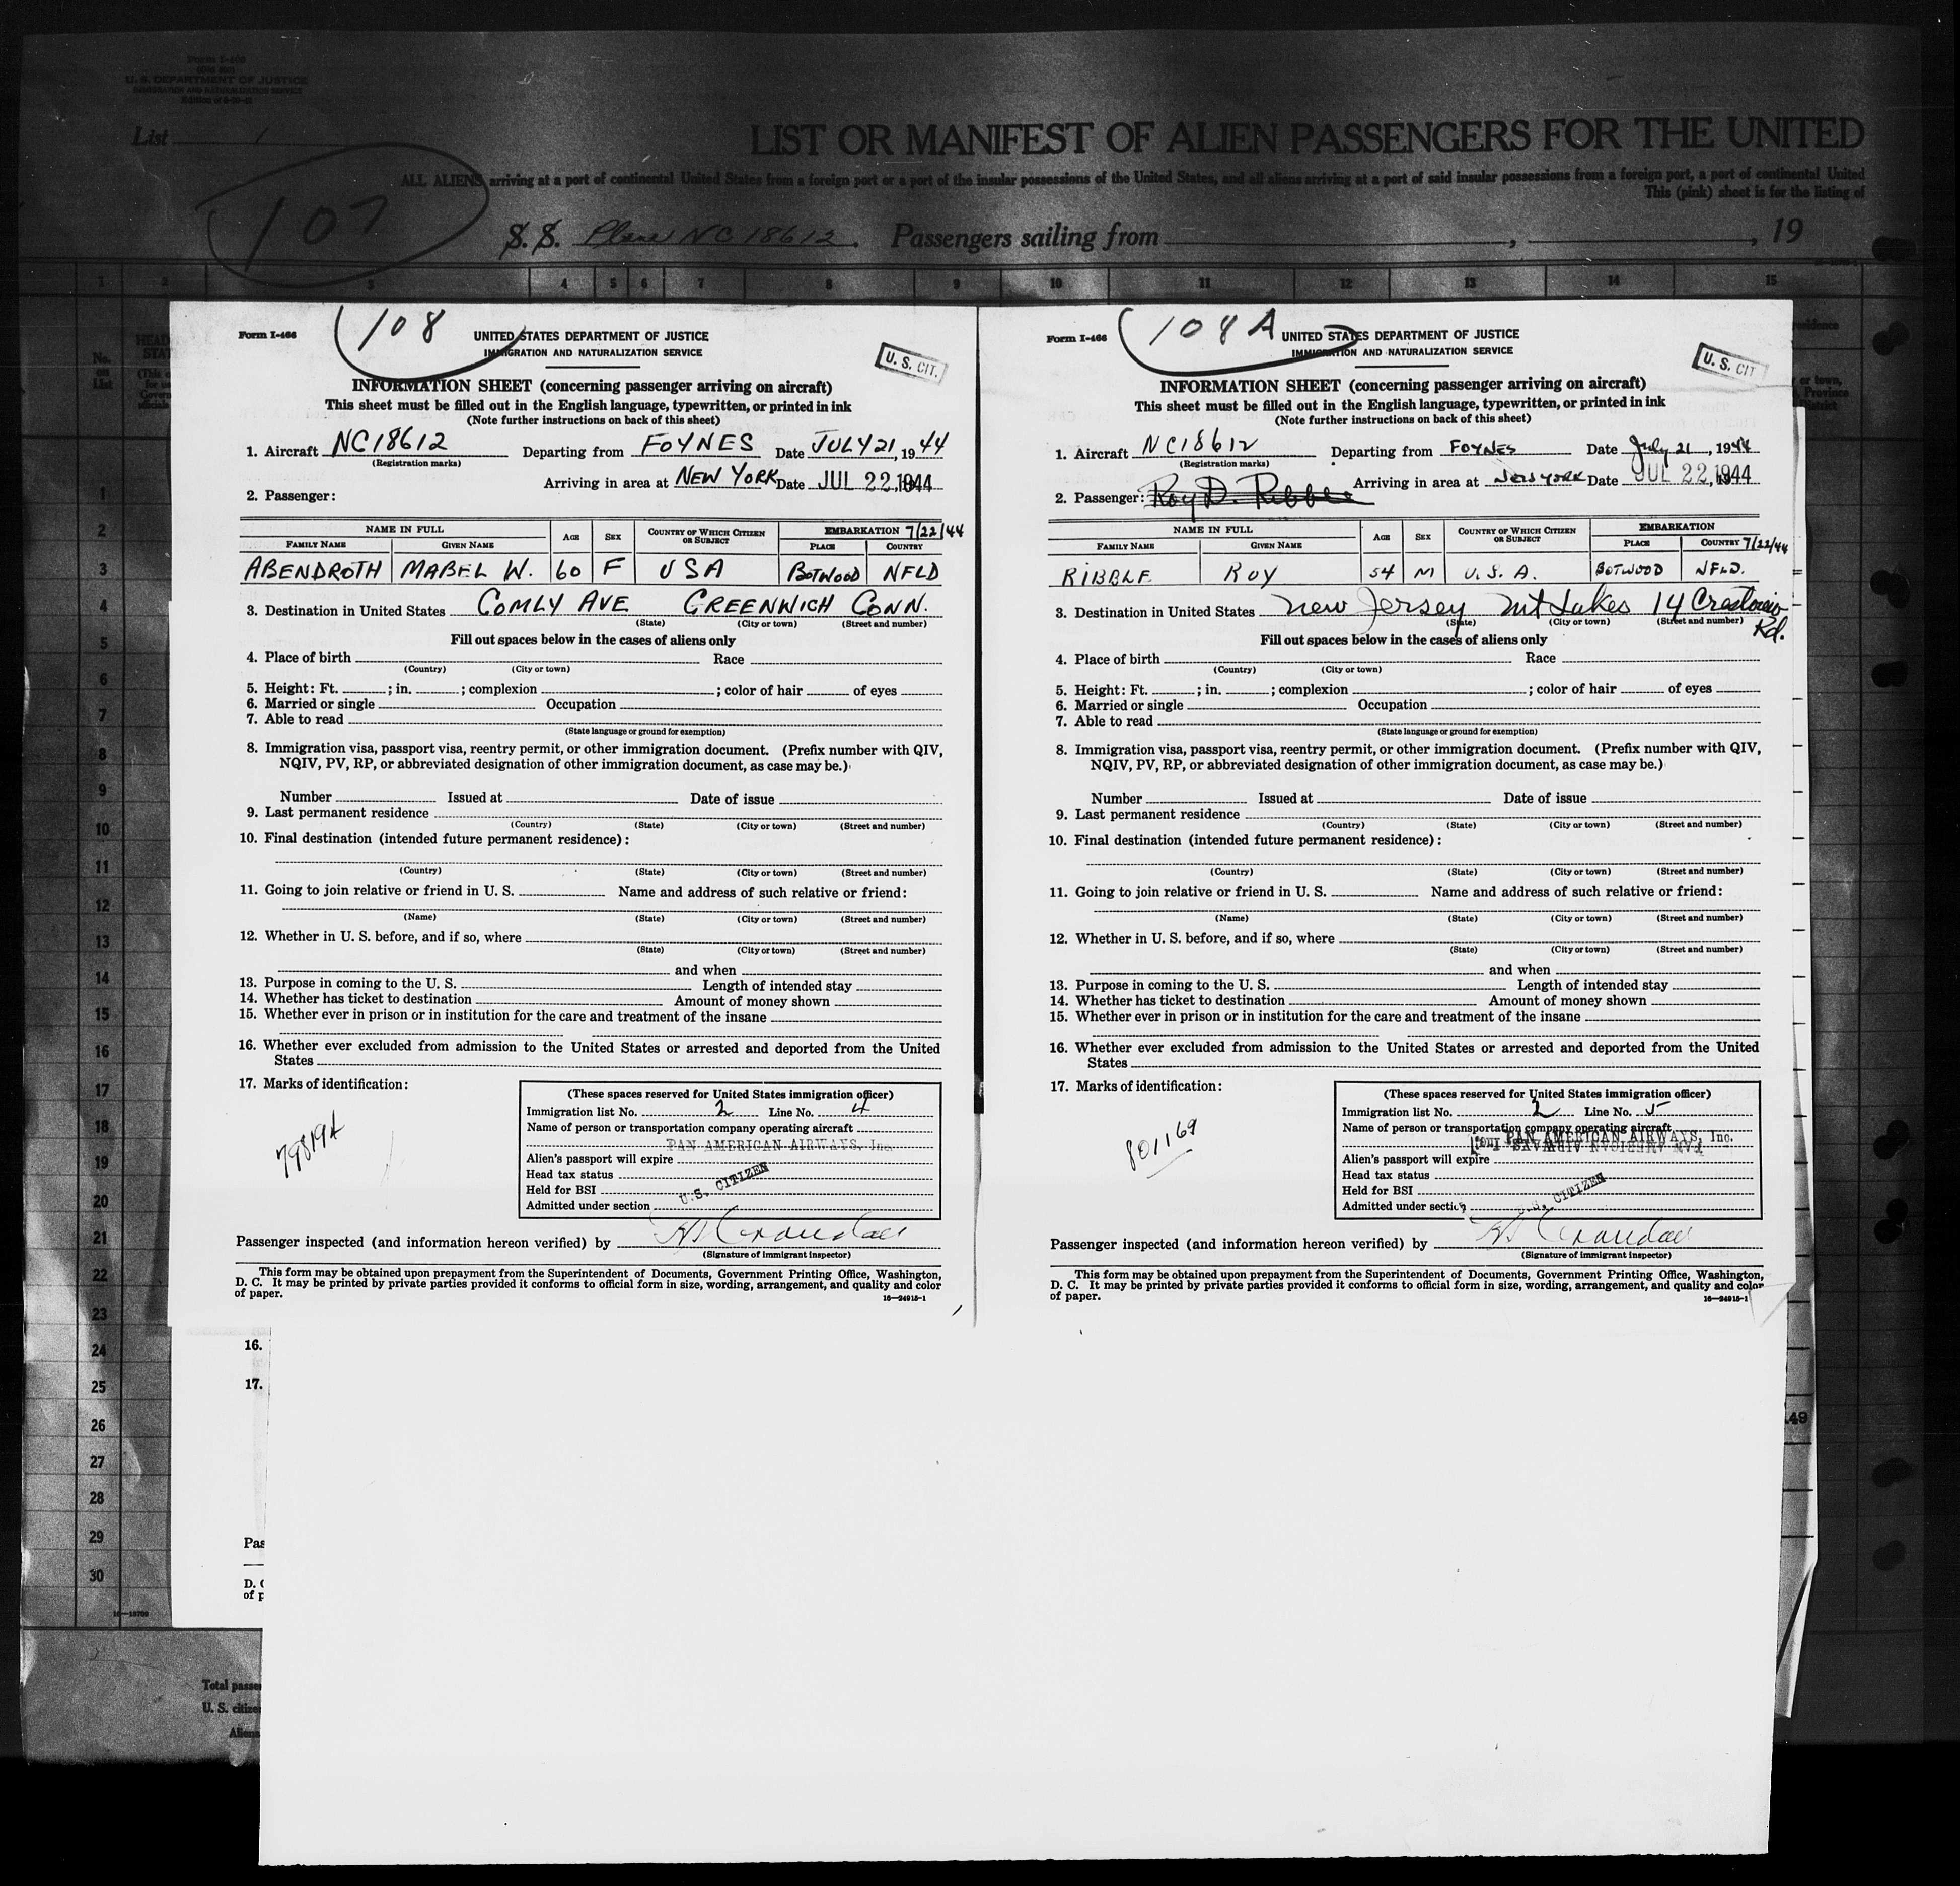 Form I-466
U. S. DEPARTMENT OF JUSTICE
IMMIGRATION AND NATURALIZATION SERVICE
List 1
LIST OR MANIFEST OF ALIEN PASSENGERS FOR THE UNITED
ALL ALIENS arriving at a port of continental United States from a foreign port or a port of the insular possessions of the United States, and all aliens arriving at a port of said insular possessions from a foreign port, a port of continental United
This (pink) sheet is for the listing of
107
S. S. Plane NC 18612. Passengers sailing from , , 19
1 2 3 4 5 6 7 8 9 10 11 12 13 14 15
No. on List
1
2
3
4
5
6
7
8
9
10
11
12
13
14
15
16
17
18
19
20
21
22
23
24
25
26
27
28
29
30
Form I-466
108
UNITED STATES DEPARTMENT OF JUSTICE
IMMIGRATION AND NATURALIZATION SERVICE
U. S. CIT.
INFORMATION SHEET (concerning passenger arriving on aircraft)
This sheet must be filled out in the English language, typewritten, or printed in ink
(Note further instructions on back of this sheet)
1. Aircraft NC18612 Departing from FOYNES Date JULY 21, 1944
(Registration marks)
Arriving in area at NEW YORK Date JUL 22, 1944
2. Passenger:
NAME IN FULL AGE SEX COUNTRY OF WHICH CITIZEN OR SUBJECT EMBARKATION 7/22/44
FAMILY NAME GIVEN NAME PLACE COUNTRY
ABENDROTH MABEL W. 60 F USA BOTWOOD NFLD
3. Destination in United States COMLY AVE GREENWICH CONN.
(State) (City or town) (Street and number)
Fill out spaces below in the cases of aliens only
4. Place of birth Race
(Country) (City or town)
5. Height: Ft. ; in. ; complexion ; color of hair of eyes
6. Married or single Occupation
7. Able to read
(State language or ground for exemption)
8. Immigration visa, passport visa, reentry permit, or other immigration document. (Prefix number with QIV,
NQIV, PV, RP, or abbreviated designation of other immigration document, as case may be.)
Number Issued at Date of issue
9. Last permanent residence
(Country) (State) (City or town) (Street and number)
10. Final destination (intended future permanent residence):
(Country) (State) (City or town) (Street and number)
11. Going to join relative or friend in U. S. Name and address of such relative or friend:
(Name) (State) (City or town) (Street and number)
12. Whether in U. S. before, and if so, where
(State) (City or town) (Street and number)
and when
13. Purpose in coming to the U. S. Length of intended stay
14. Whether has ticket to destination Amount of money shown
15. Whether ever in prison or in institution for the care and treatment of the insane
16. Whether ever excluded from admission to the United States or arrested and deported from the United
States
17. Marks of identification:
(These spaces reserved for United States immigration officer)
Immigration list No. 2 Line No. 4
Name of person or transportation company operating aircraft
PAN AMERICAN AIRWAYS, Inc.
Alien's passport will expire
Head tax status
Held for BSI
U.S. CITIZEN
Admitted under section
Passenger inspected (and information hereon verified) by
(Signature of immigrant inspector)
This form may be obtained upon prepayment from the Superintendent of Documents, Government Printing Office, Washington,
D. C. It may be printed by private parties provided it conforms to official form in size, wording, arrangement, and quality and color
of paper.
16—24915-1
Form I-466
108 A
UNITED STATES DEPARTMENT OF JUSTICE
IMMIGRATION AND NATURALIZATION SERVICE
U. S. CIT
INFORMATION SHEET (concerning passenger arriving on aircraft)
This sheet must be filled out in the English language, typewritten, or printed in ink
(Note further instructions on back of this sheet)
1. Aircraft NC18612 Departing from FOYNES Date July 21, 1944
(Registration marks)
Arriving in area at New York Date JUL 22, 1944
2. Passenger: Roy D. Ribble
NAME IN FULL AGE SEX COUNTRY OF WHICH CITIZEN OR SUBJECT EMBARKATION
FAMILY NAME GIVEN NAME PLACE COUNTRY 7/22/44
RIBBLE ROY 54 M U.S.A. BOTWOOD NFLD.
3. Destination in United States New Jersey Mt Lakes 14 Crestview Rd.
(State) (City or town) (Street and number)
Fill out spaces below in the cases of aliens only
4. Place of birth Race
(Country) (City or town)
5. Height: Ft. ; in. ; complexion ; color of hair of eyes
6. Married or single Occupation
7. Able to read
(State language or ground for exemption)
8. Immigration visa, passport visa, reentry permit, or other immigration document. (Prefix number with QIV,
NQIV, PV, RP, or abbreviated designation of other immigration document, as case may be.)
Number Issued at Date of issue
9. Last permanent residence
(Country) (State) (City or town) (Street and number)
10. Final destination (intended future permanent residence):
(Country) (State) (City or town) (Street and number)
11. Going to join relative or friend in U. S. Name and address of such relative or friend:
(Name) (State) (City or town) (Street and number)
12. Whether in U. S. before, and if so, where
(State) (City or town) (Street and number)
and when
13. Purpose in coming to the U. S. Length of intended stay
14. Whether has ticket to destination Amount of money shown
15. Whether ever in prison or in institution for the care and treatment of the insane
16. Whether ever excluded from admission to the United States or arrested and deported from the United
States
17. Marks of identification:
801169
(These spaces reserved for United States immigration officer)
Immigration list No. 2 Line No. 5
Name of person or transportation company operating aircraft
PAN AMERICAN AIRWAYS, Inc.
Alien's passport will expire
Head tax status
Held for BSI
U.S. CITIZEN
Admitted under section
Passenger inspected (and information hereon verified) by
(Signature of immigrant inspector)
This form may be obtained upon prepayment from the Superintendent of Documents, Government Printing Office, Washington,
D. C. It may be printed by private parties provided it conforms to official form in size, wording, arrangement, and quality and color
of paper.
16—24915-1
16.
17.
Pas
D. C
of p
49
Total passe
U. S. citize
Aliens